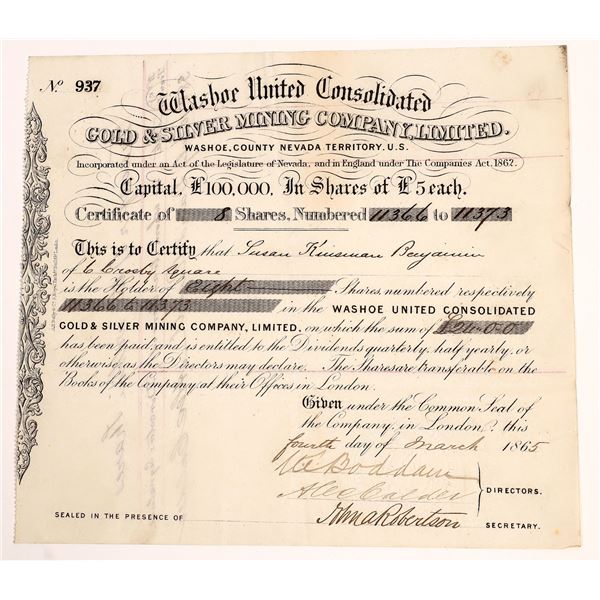 No. 937
Washoe United Consolidated
GOLD & SILVER MINING COMPANY, LIMITED.
WASHOE, COUNTY NEVADA TERRITORY. U.S.
Incorporated under an Act of the Legislature of Nevada, and in England under The Companies Act, 1862.
Capital, £100,000, In Shares of £5 each.
Certificate of 8 Shares, Numbered 11366 to 11373
This is to Certify that Susan Kinsman Benjamin
of 6 Crosby Square
is the Holder of Eight Shares, numbered respectively
11366 to 11373 in the WASHOE UNITED CONSOLIDATED
GOLD & SILVER MINING COMPANY, LIMITED, on which the sum of
has been paid, and is entitled to the Dividends quarterly, half yearly, or
otherwise, as the Directors may declare. The Shares are transferable on the
Books of the Company, at their Offices in London.
Given under the Common Seal of
the Company, in London, this
fourth day of March 1865
Boddam
DIRECTORS.
SEALED IN THE PRESENCE OF
John A Robertson
SECRETARY.